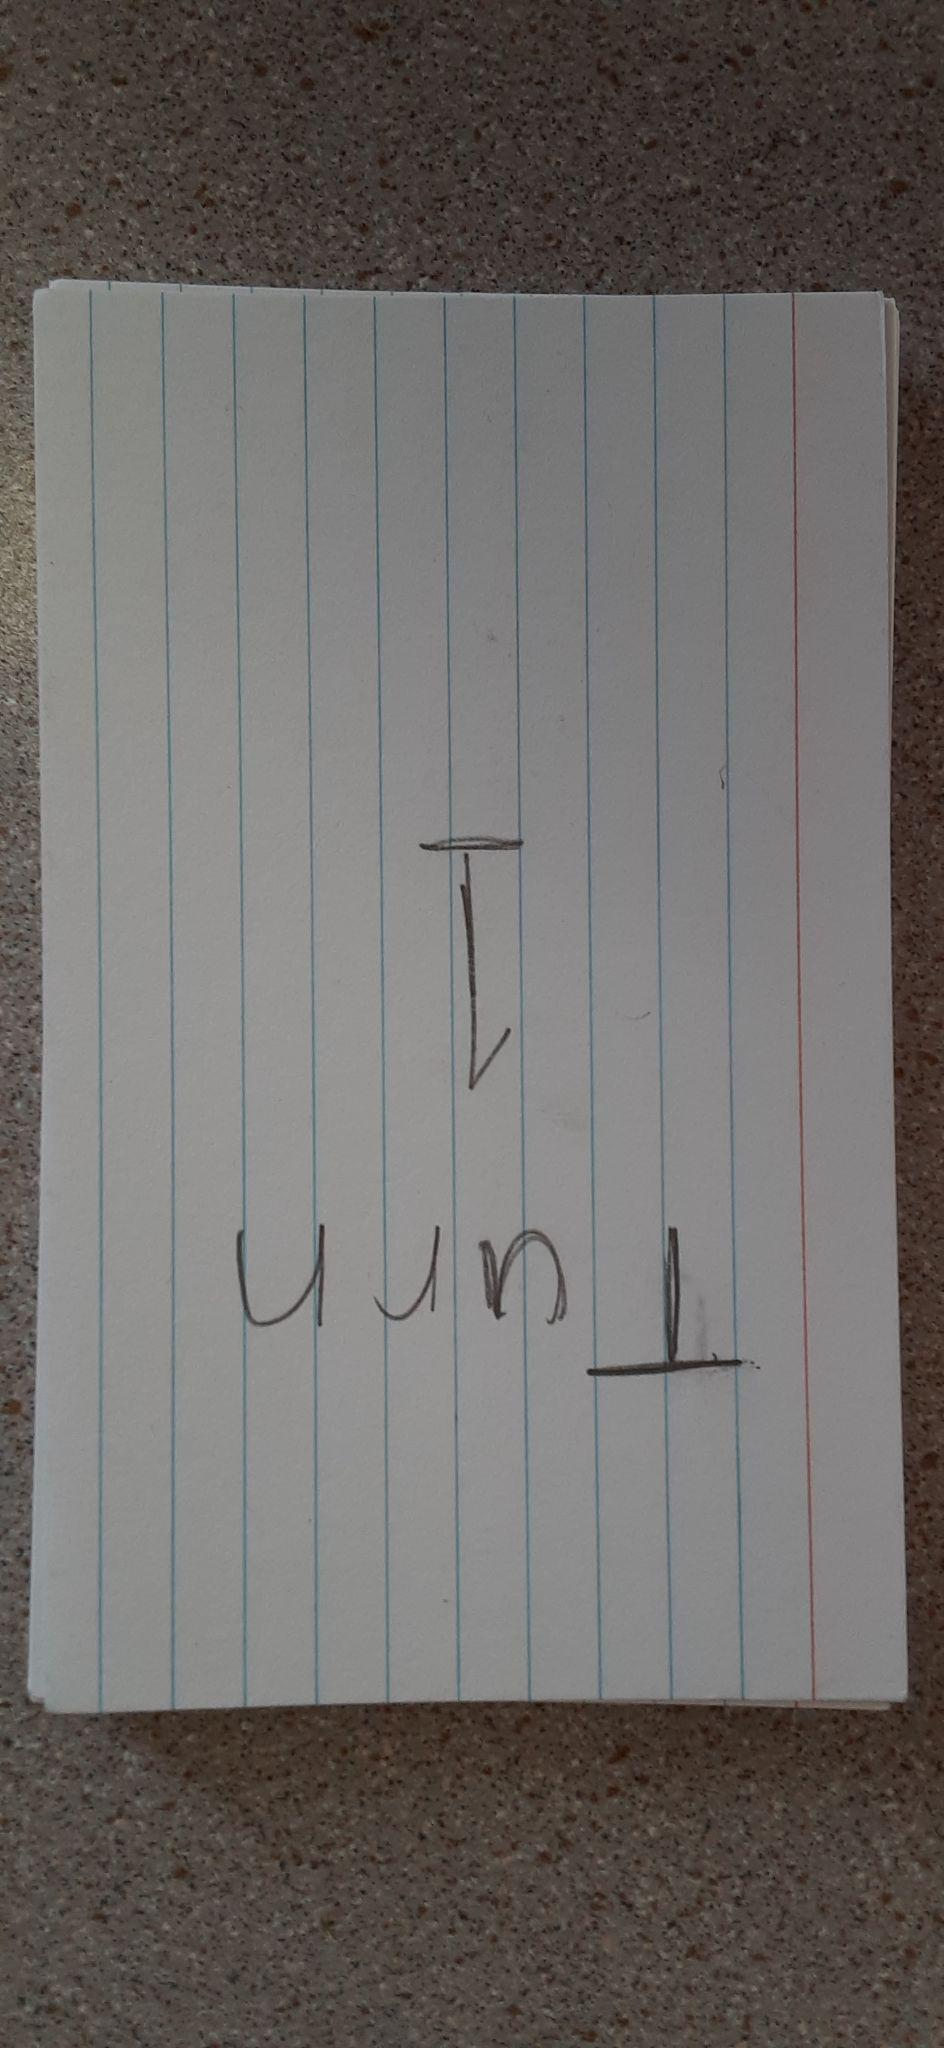 Turn
1